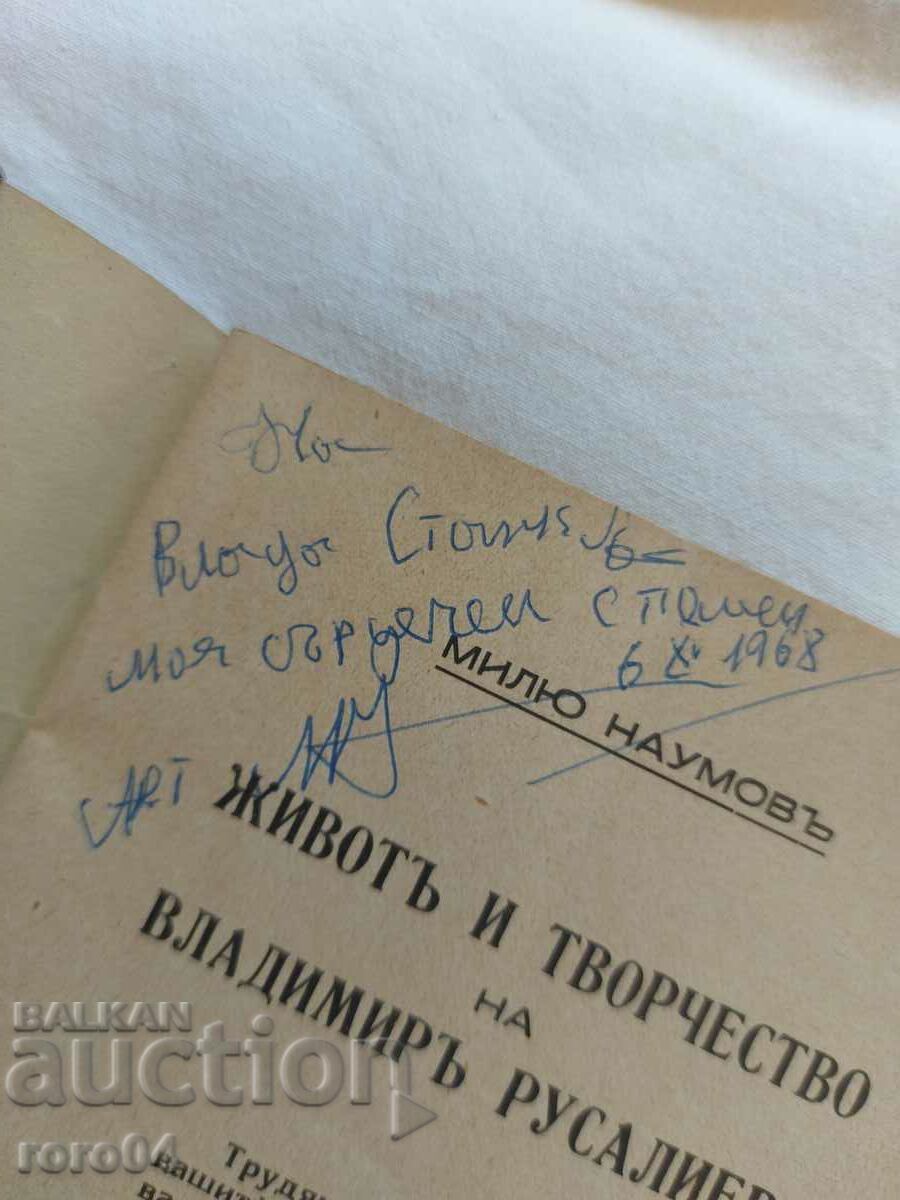 На
Влада
моя сърдечен спомен
6 XI 1968
МИЛЮ НАУМОВЪ
ЖИВОТЪ И ТВОРЧЕСТВО
НА
ВЛАДИМИРЪ РУСАЛИЕВ
BALKAN
auction
roro04